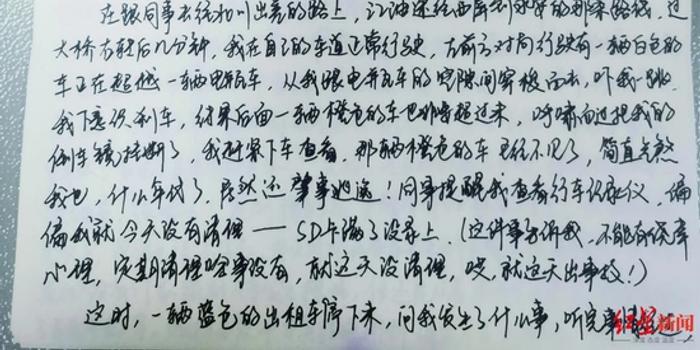 在跟同事去绥和川出差的路上，江油
大桥右转后几分钟，我在自己的车道正常行驶，左前方对向行驶有一辆白色的
车正在超越一辆电瓶车，从我跟电瓶车的空隙间穿梭而去，吓我一跳
我下意识刹车，结果后面一辆橙色的车也跟着超过来，呼啸而过把我的
倒车镜挂掉了，我赶紧下车查看，那辆橙色的车已经不见了，简直
我也，什么年代了，居然还肇事逃逸！同事提醒我查看行车记录仪，偏
偏我就今天没有清理——SD卡满了没录上。（这件事告诉我，不能有侥幸
心理，定期清理啥事没有，就这天没清理，哎，就这天出事故！）
这时，一辆蓝色的出租车停下来，问我发生了什么事，听完
红星新闻
深度 态度 温度